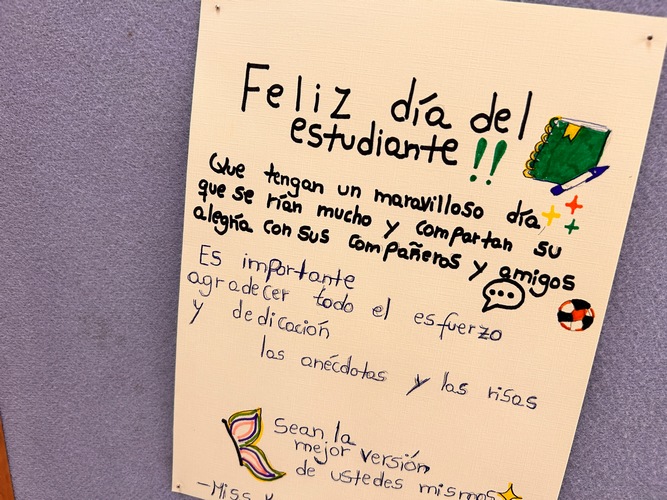 Feliz día del
estudiante!!
Que tengan un maravilloso día
que se rían mucho y compartan su
alegría con sus compañeros y amigos
Es importante
agradecer todo el esfuerzo
y dedicación
las anécdotas y las risas
Sean la
mejor versión
de ustedes mismos
-Miss